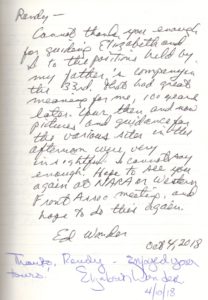 Randy –
Cannot thank you enough
for guiding Elizabeth and
I to the positions held by
my father's company in
the 33rd. That had great
meaning for me, 100 years
later. Your then and now
pictures and guidance for
the various sites in the
afternoon were very
insightful. I cannot say
enough! Hope to see you
again at NARA or Western
Front Assoc meeting, and
hope to do this again.
Ed
Oct 4, 2018
Thanks, Randy – Enjoyed your
tours. Elizabeth
4/10/18